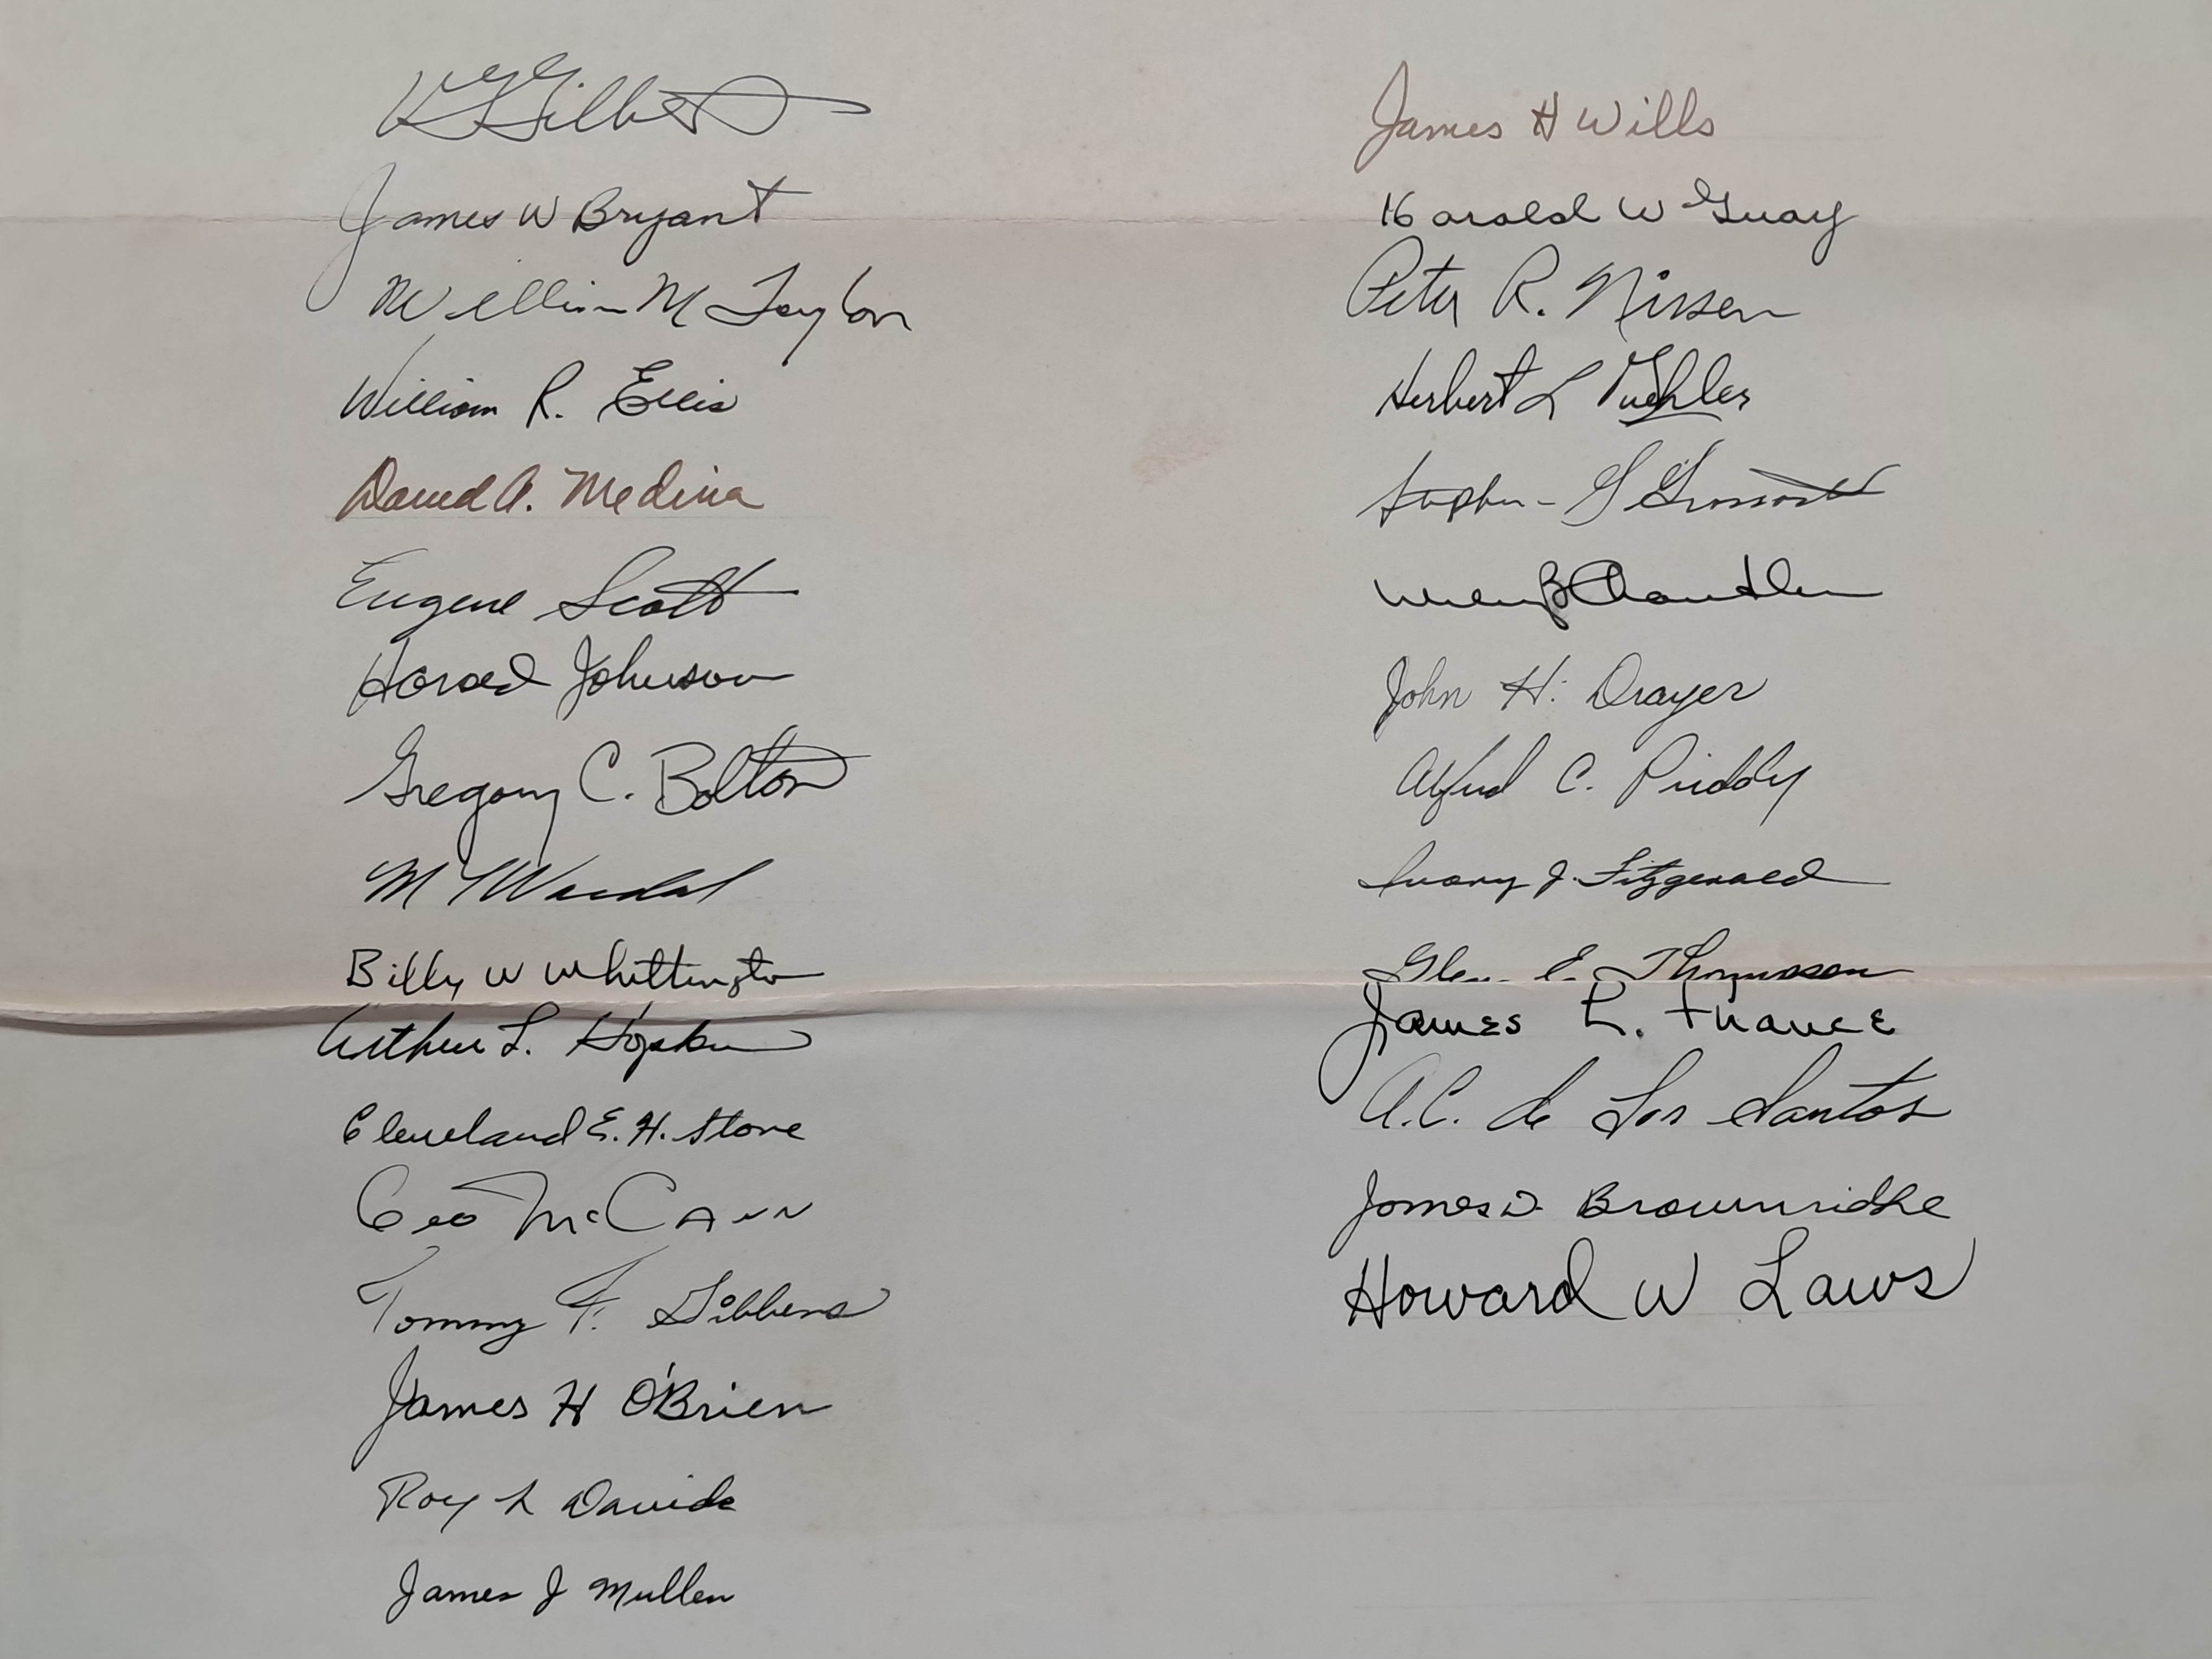 Gilbert
James W Bryant
William M Taylor
William R. Ellis
David A. Medina
Eugene Scott
Harold Johnson
Gregory C. Bolton
M
Billy W Whittington
Arthur L. Hopkins
Cleveland E. H. Stone
Geo McCann
Tommy F. Gibbens
James H O'Brien
Roy L Davids
James J Mullen
James H Wills
Harold W Guay
Peter R. Nissen
Herbert L
Stephen G
B Chandler
John H. Drayer
Alfred C. Priddy
Ivory J. Fitzgerald
Glen E. Thomasson
James L.
A.C. de Los Santos
James D. Brownridge
Howard W Laws